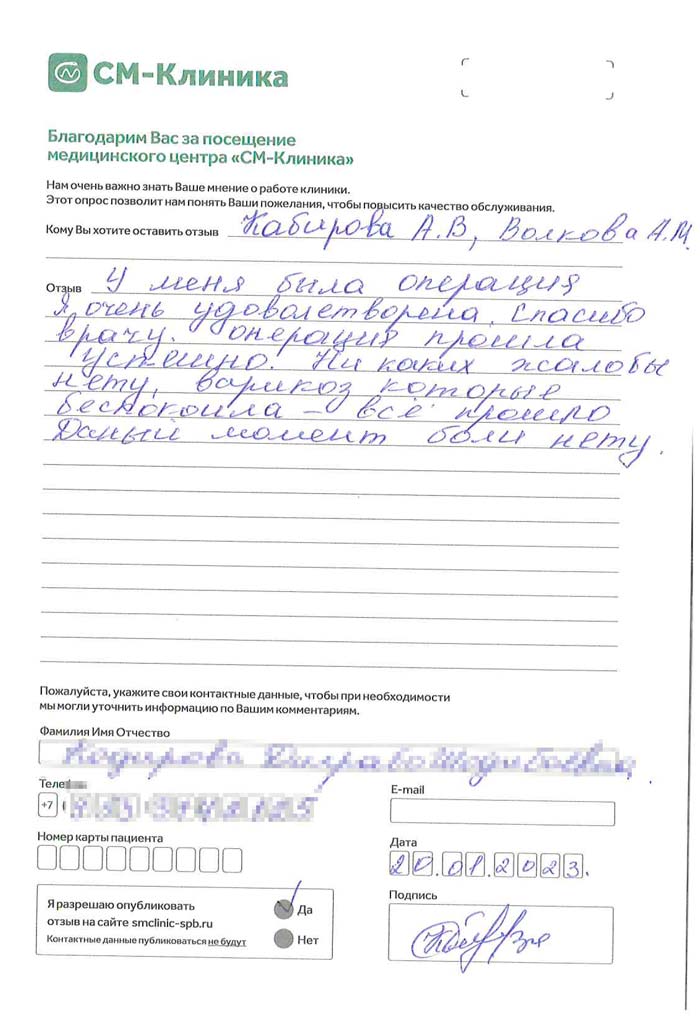 СМ-Клиника
Благодарим Вас за посещение
медицинского центра «СМ-Клиника»
Нам очень важно знать Ваше мнение о работе клиники.
Этот опрос позволит нам понять Ваши пожелания, чтобы повысить качество обслуживания.
Кому Вы хотите оставить отзыв Кабирова А.В, Волкова А.М
Отзыв У меня была операция
Я очень удовалетворена. Спасибо
врачу. операция прошла
успешно. Ни каких жалобы
нету, варикоз которые
беспокоила – всё прошло
Даный момент боли нету.
Пожалуйста, укажите свои контактные данные, чтобы при необходимости
мы могли уточнить информацию по Вашим комментариям.
Фамилия Имя Отчество
E-mail
+7
Номер карты пациента
Дата
20.01.2023.
Подпись
Я разрешаю опубликовать
отзыв на сайте smclinic-spb.ru
Контактные данные публиковаться не будут
Да
Нет